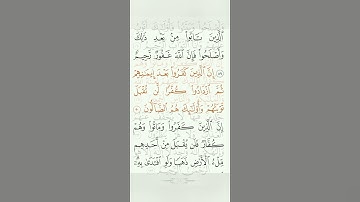 ٱلَّذِينَ تَابُوا۟ مِنۢ بَعْدِ ذَٰلِكَ
وَأَصْلَحُوا۟ فَإِنَّ ٱللَّهَ غَفُورٌ رَّحِيمٌ
٨٩ إِنَّ ٱلَّذِينَ كَفَرُوا۟ بَعْدَ إِيمَـٰنِهِمْ
ثُمَّ ٱزْدَادُوا۟ كُفْرًا لَّن تُقْبَلَ
تَوْبَتُهُمْ وَأُو۟لَـٰٓئِكَ هُمُ ٱلضَّآلُّونَ ٩٠
إِنَّ ٱلَّذِينَ كَفَرُوا۟ وَمَاتُوا۟ وَهُمْ
كُفَّارٌ فَلَن يُقْبَلَ مِنْ أَحَدِهِم
مِّلْءُ ٱلْأَرْضِ ذَهَبًا وَلَوِ ٱفْتَدَىٰ بِهِۦٓ